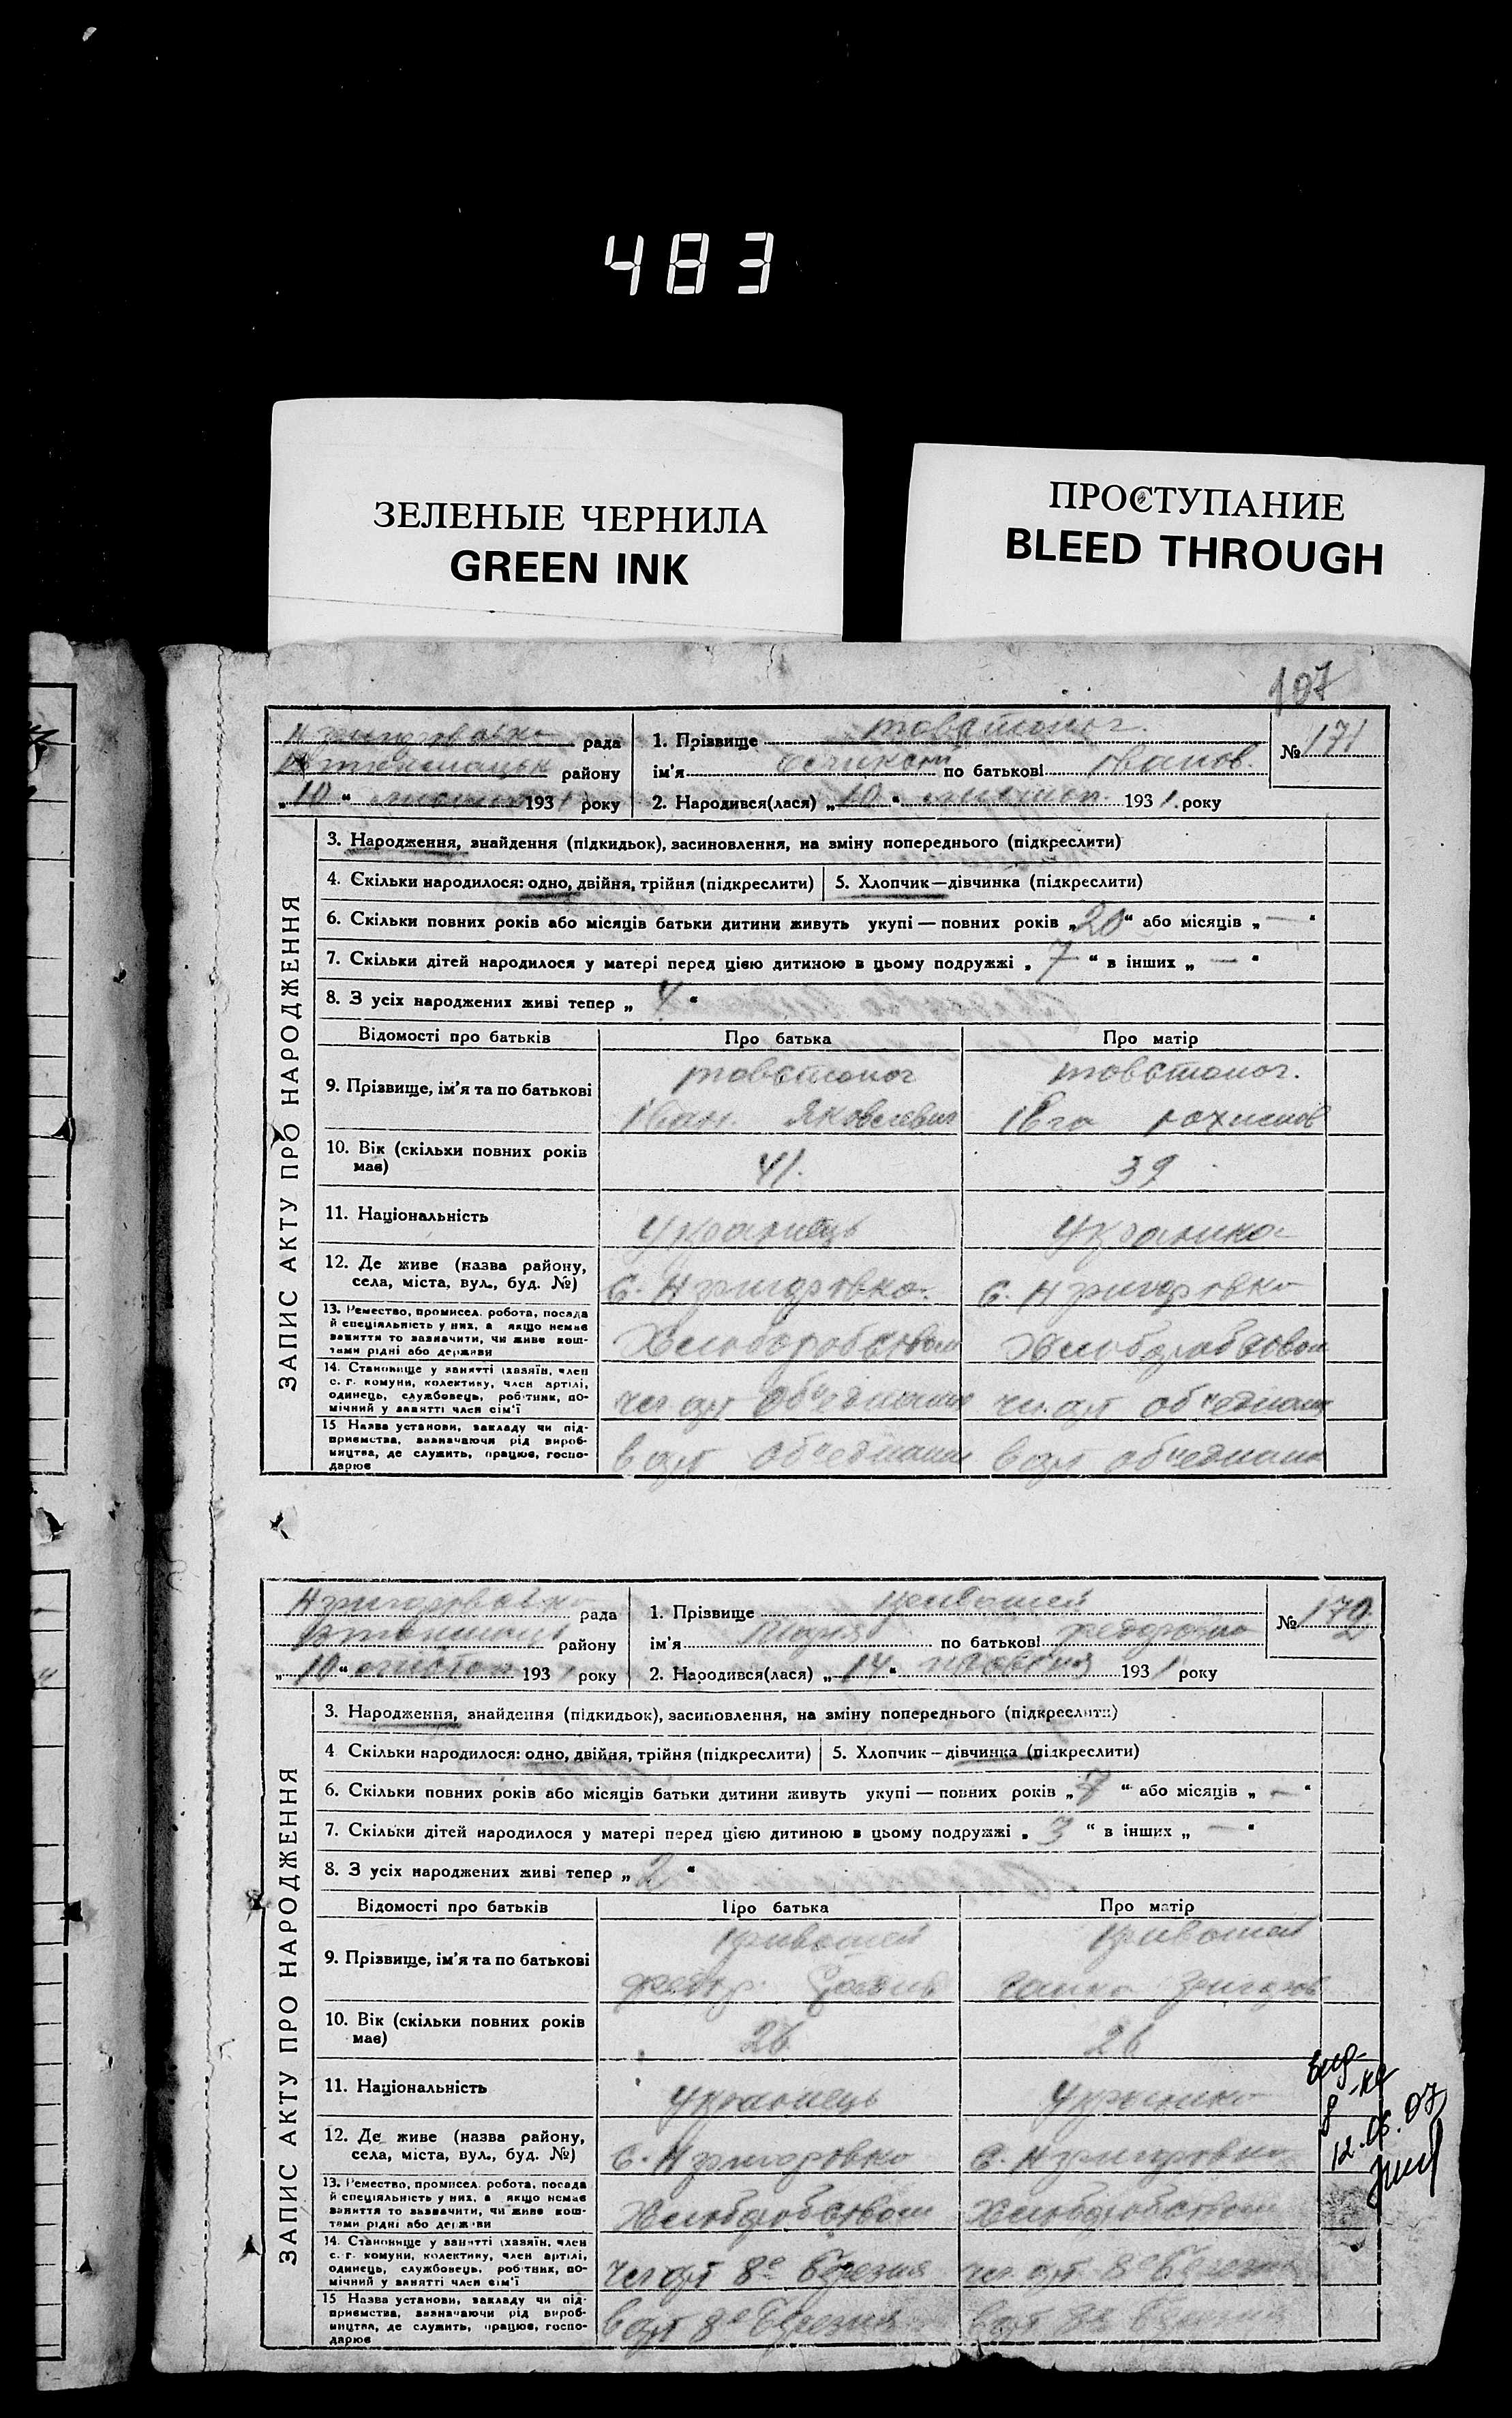 483
ЗЕЛЕНЫЕ ЧЕРНИЛА
GREEN INK
ПРОСТУПАНИЕ
BLEED THROUGH
107
рада
району
„10“ 1931 року
1. Прізвище Товстоног.
ім'я по батькові Іванов.
2. Народився(лася) „10“ 1931 року
№ 171
ЗАПИС АКТУ ПРО НАРОДЖЕННЯ
3. Народження, знайдення (підкидьок), засиновлення, на зміну попереднього (підкреслити)
4. Скільки народилося: одно, двійня, трійня (підкреслити)
5. Хлопчик—дівчинка (підкреслити)
6. Скільки повних років або місяців батьки дитини живуть укупі — повних років „20“ або місяців „—“
7. Скільки дітей народилося у матері перед цією дитиною в цьому подружжі „7“ в інших „—“
8. З усіх народжених живі тепер „4“
Відомості про батьків Про батька Про матір
9. Прізвище, ім'я та по батькові
Товстоног Товстоног.
Іван. Яковлевич
10. Вік (скільки повних років має) 41. 39
11. Національність Українець Українка
12. Де живе (назва району, села, міста, вул., буд. №) с. Н григоровка. с. Н григоровка
13. Ремество, промисел, робота, посада
й спеціяльність у них, а якщо немає
заняття то зазначити, чи живе кош-
тами рідні або держави
Хлеборобством Хлеборобством
14. Становище у занятті (хазяїн, член
с. г. комуни, колективу, член артілі,
одинець, службовець, робітник, по-
мічний у занятті член сім'ї
чл. арт чл. арт
15 Назва установи, закладу чи під-
приємства, зазначаючи рід вироб-
ництва, де служить, працює, госпо-
дарює
в арт в арт
Н григоровка рада
району
„10“ листоп 1931 року
1. Прізвище Кривошей
ім'я Марія по батькові Федоровна
2. Народився(лася) „14“ 1931 року
№ 172
ЗАПИС АКТУ ПРО НАРОДЖЕННЯ
3. Народження, знайдення (підкидьок), засиновлення, на зміну попереднього (підкреслити)
4. Скільки народилося: одно, двійня, трійня (підкреслити)
5. Хлопчик—дівчинка (підкреслити)
6. Скільки повних років або місяців батьки дитини живуть укупі — повних років „7“ або місяців „—“
7. Скільки дітей народилося у матері перед цією дитиною в цьому подружжі „3“ в інших „—“
8. З усіх народжених живі тепер „2“
Відомості про батьків Про батька Про матір
9. Прізвище, ім'я та по батькові
Кривошей Кривошей
Федор Ганна Григоров
10. Вік (скільки повних років має) 26 26
11. Національність Українець Українка
12. Де живе (назва району, села, міста, вул., буд. №) с. Н григоровка с. Н григоровка
13. Ремество, промисел, робота, посада
й спеціяльність у них, а якщо немає
заняття то зазначити, чи живе кош-
тами рідні або держави
Хлеборобством Хлеборобством
14. Становище у занятті (хазяїн, член
с. г. комуни, колективу, член артілі,
одинець, службовець, робітник, по-
мічний у занятті член сім'ї
чл арт 8е Березня чл. арт 8е Березня
15 Назва установи, закладу чи під-
приємства, зазначаючи рід вироб-
ництва, де служить, працює, госпо-
дарює
в арт 8е Березня в арт 8е Березня
12.06.07